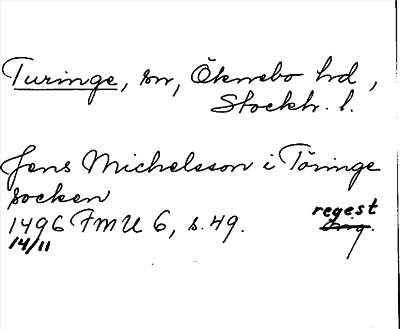 Turinge, sn, Öknebo hd,
Stockh. l.
Jens Michelsson i Töringe
socken
1496 FMU 6, s. 49. regest
14/11 orig.